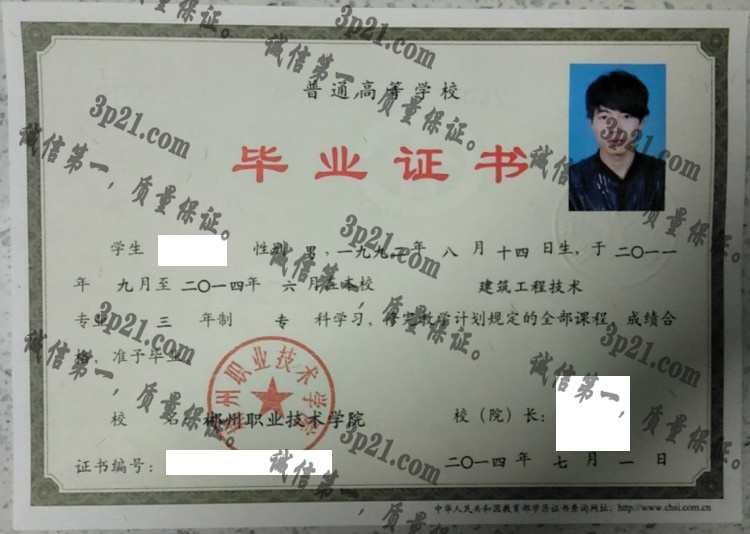 普通高等学校
毕业证书
学生 性别 男，一九九二年 八 月 十四 日生，于 二〇一一
年 九月至 二〇一四年 六 月在本校 建筑工程技术
专业 三 年制 专 科学习，修完教学计划规定的全部课程，成绩合
格，准予毕业
校 名：郴州职业技术学院 校（院）长：
证书编号： 二〇一四年 七 月 一 日
中华人民共和国教育部学历证书查询网址：http://www.chsi.com.cn
郴州职业技术学院
3p21.com
诚信第一，质量保证。
3p21.com
诚信第一，质量保证。
3p21.com
诚信第一，质量保证。
3p21.com
诚信第一，质量保证。
3p21.com
诚信第一，质量保证。
3p21.com
诚信第一，质量保证。
3p21.com
诚信第一，质量保证。